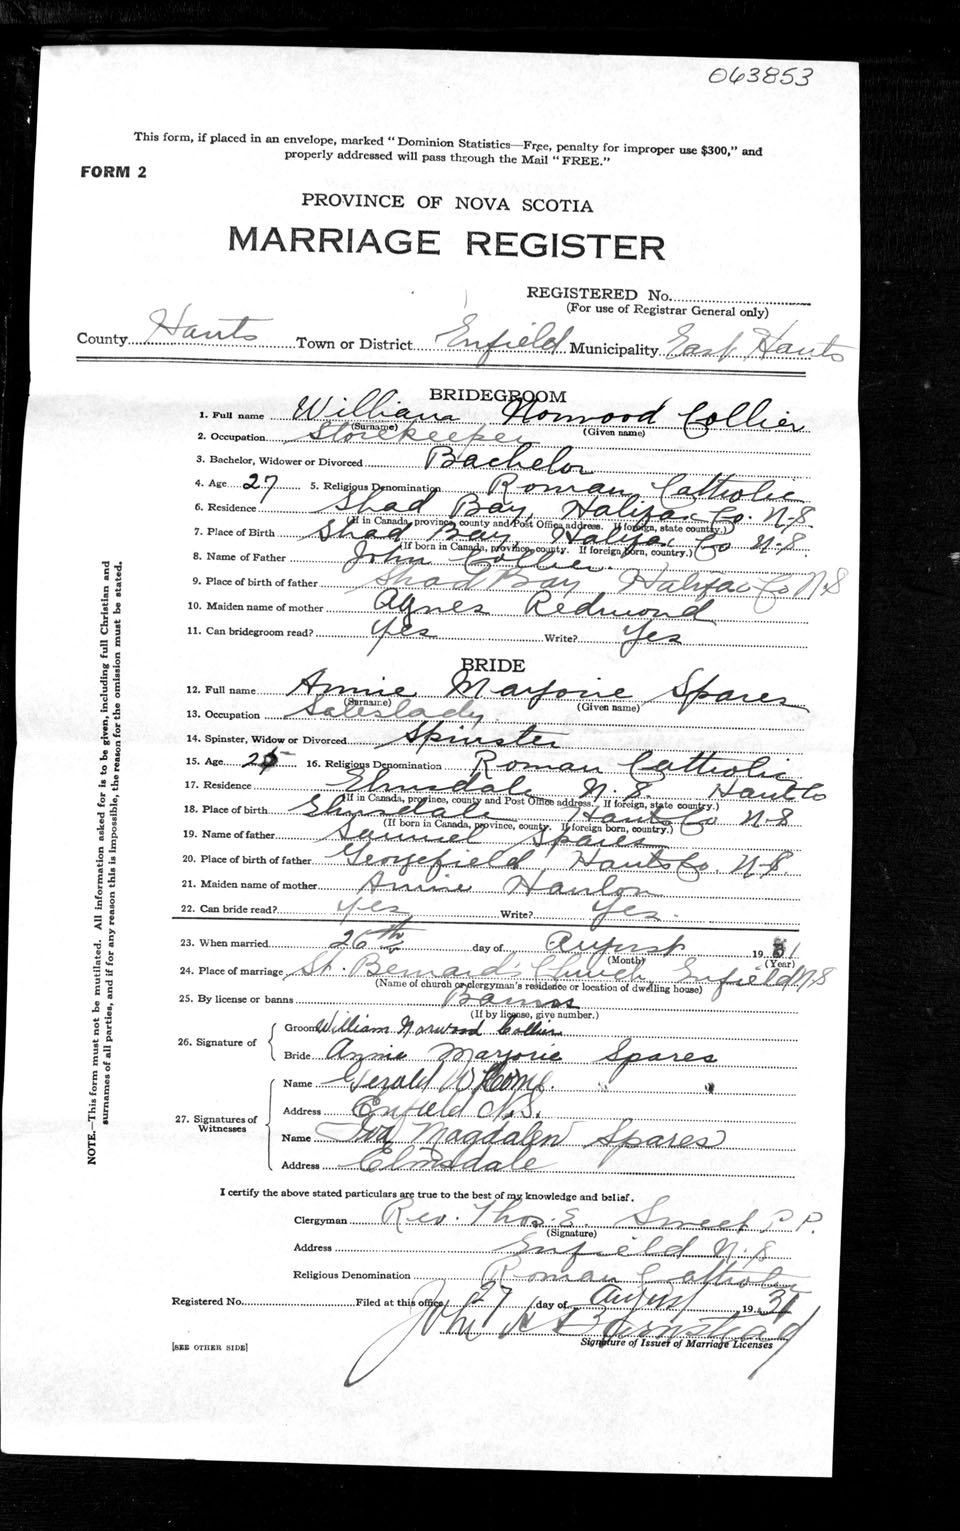 063853
This form, if placed in an envelope, marked "Dominion Statistics—Free, penalty for improper use $300," and
properly addressed will pass through the Mail "FREE."
FORM 2
PROVINCE OF NOVA SCOTIA
MARRIAGE REGISTER
REGISTERED No.
(For use of Registrar General only)
County Hants Town or District Enfield Municipality East Hants
BRIDEGROOM
1. Full name William Norwood Collier
(Surname) (Given name)
2. Occupation Storekeeper
3. Bachelor, Widower or Divorced Bachelor
4. Age 27 5. Religious Denomination Roman Catholic
6. Residence Shad Bay, Halifax Co. N.S.
(If in Canada, province, county and Post Office address. If foreign, state country.)
7. Place of Birth Shad Bay Halifax Co N.S.
(If born in Canada, province, county. If foreign born, country.)
8. Name of Father John Collier.
9. Place of birth of father Shad Bay Halifax Co N.S
10. Maiden name of mother Agnes Redmond
11. Can bridegroom read? Yes Write? Yes
BRIDE
12. Full name Annie Marjorie Spares
(Surname) (Given name)
13. Occupation Saleslady.
14. Spinster, Widow or Divorced Spinster
15. Age 25 16. Religious Denomination Roman Catholic
17. Residence Elmsdale N.S. Hants Co
(If in Canada, province, county and Post Office address. If foreign, state country.)
18. Place of birth Elmsdale Hants Co N.S
(If born in Canada, province, county. If foreign born, country.)
19. Name of father Samuel Spares
20. Place of birth of father Georgefield Hants Co. N.S.
21. Maiden name of mother Annie Hanlon
22. Can bride read? Yes Write? Yes.
23. When married 26th day of August 1931
(Month) (Year)
24. Place of marriage St. Bernard's Church Enfield N.S
(Name of church or clergyman's residence or location of dwelling house)
25. By license or banns Banns
(If by license, give number.)
26. Signature of
Groom William Norwood Collier
Bride Annie Marjorie Spares
27. Signatures of Witnesses
Name Gerald W.
Address Enfield N.S.
Name Magdalen Spares
Address Elmsdale
I certify the above stated particulars are true to the best of my knowledge and belief.
Clergyman Rev. Thos. E. Sweet P.P.
(Signature)
Address Enfield N.S
Religious Denomination Roman Catholic
Registered No. Filed at this office 27 day of August 1931
John H
Signature of Issuer of Marriage Licenses
[SEE OTHER SIDE]
NOTE.—This form must not be mutilated. All information asked for is to be given, including full Christian and
surnames of all parties, and if for any reason this is impossible, the reason for the omission must be stated.